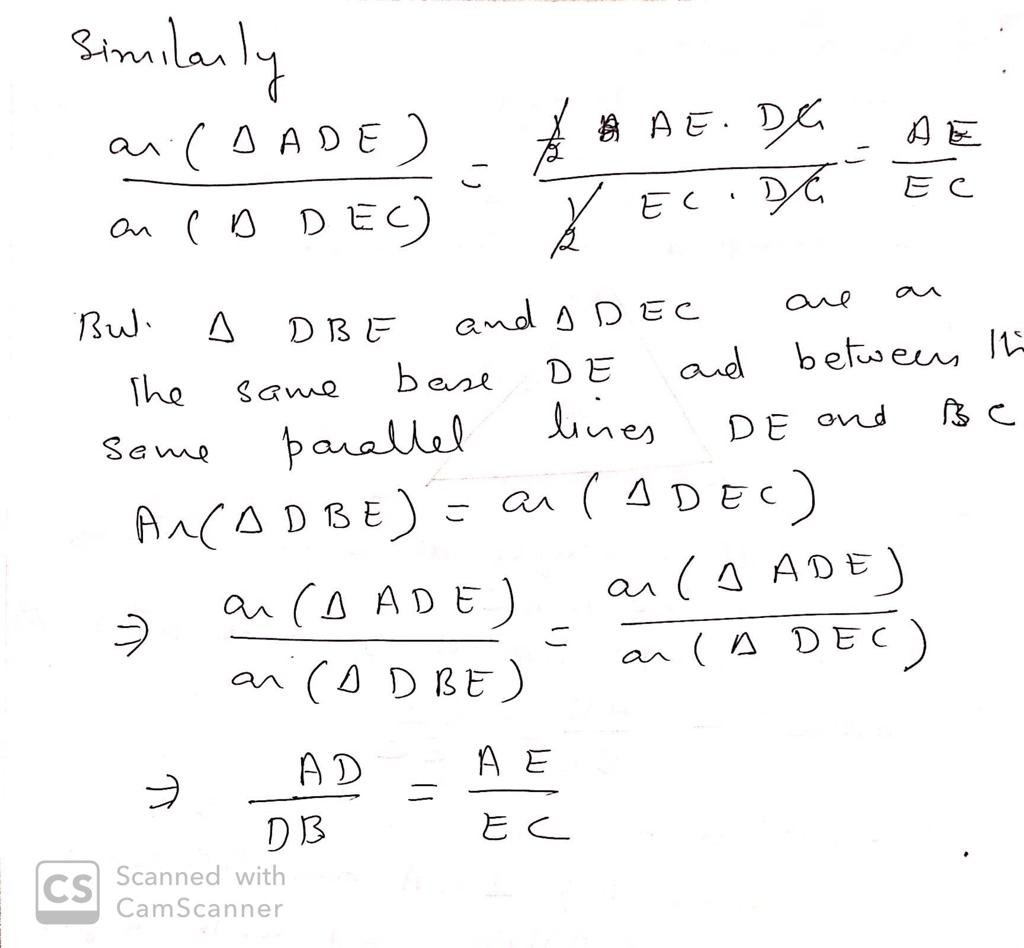 Similarly
ar (Δ ADE) / ar (Δ DEC) = 1/2 AE . DG / 1/2 EC . DG = AE / EC
But Δ DBE and Δ DEC are on
the same base DE and between the
same parallel lines DE and BC
Ar(Δ DBE) = ar (Δ DEC)
⇒ ar (Δ ADE) / ar (Δ DBE) = ar (Δ ADE) / ar (Δ DEC)
⇒ AD / DB = AE / EC
CS Scanned with
CamScanner